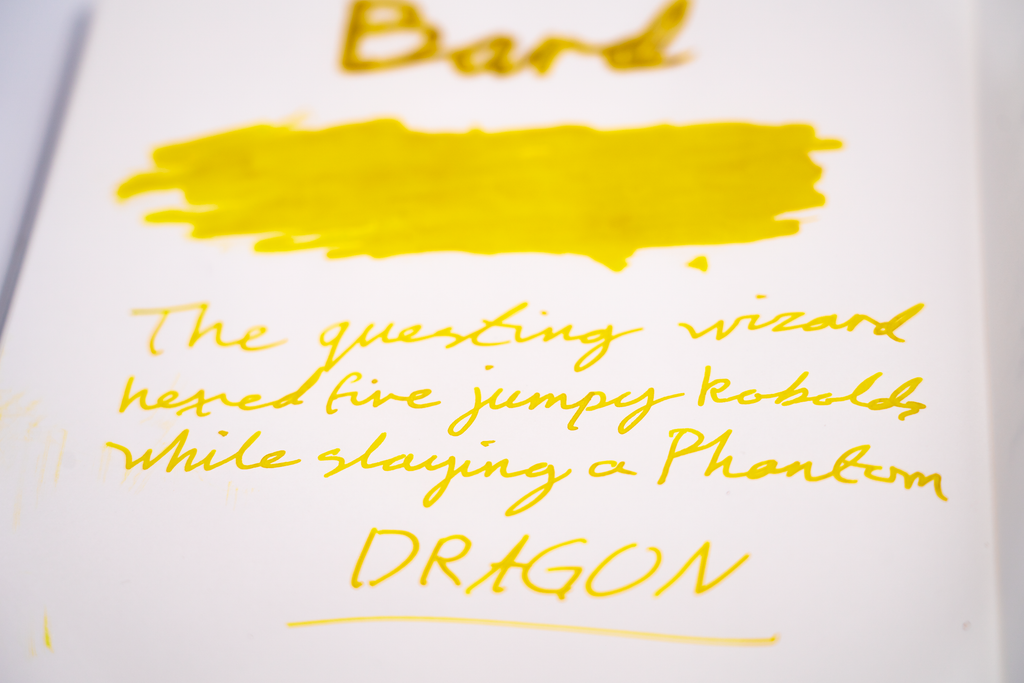 Bard
The questing wizard
hexed five jumpy kobolds
while slaying a Phantom
DRAGON